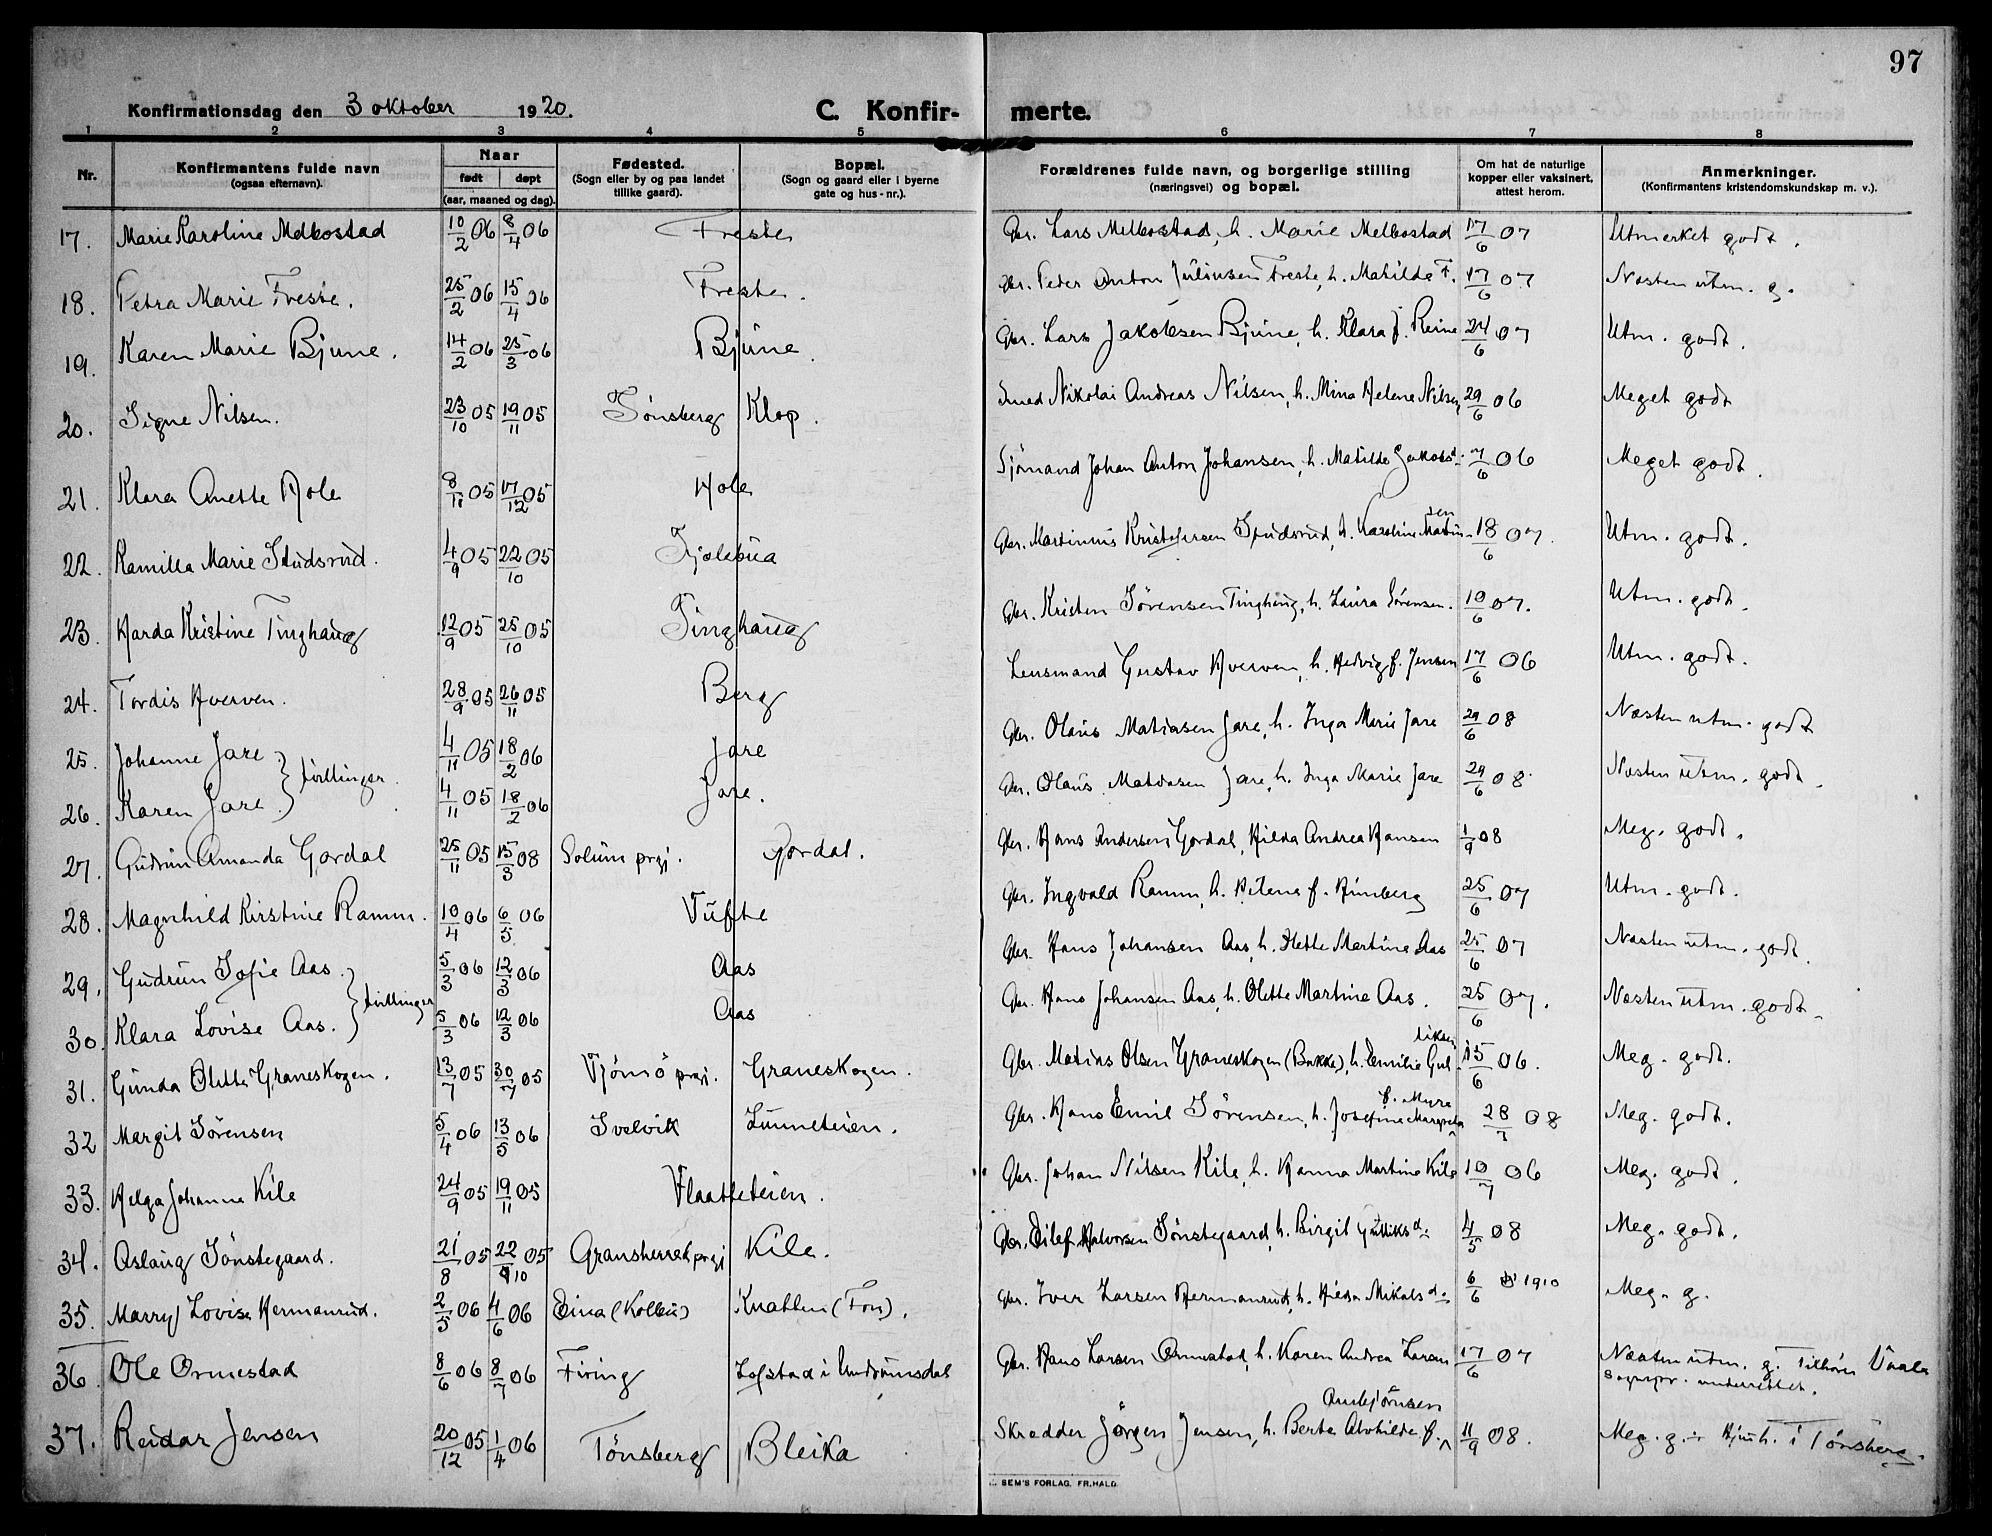 97
Konfirmationsdag den 3 oktober 1920.
C. Konfir- merte.
1 2 3 4 5 6 7 8
Nr. Konfirmantens fulde navn (ogsaa efternavn). Naar født døpt (aar, maaned og dag). Fødested. (Sogn eller by og paa landet tillike gaard). Bopæl. (Sogn og gaard eller i byerne gate og hus-nr.). Forældrenes fulde navn, og borgerlige stilling (næringsvei) og bopæl. Om hat de naturlige kopper eller vaksinert, attest herom. Anmerkninger. (Konfirmantens kristendomskundskap m. v.).
17. Marie Karoline Melbostad 10/2 06 8/4 06 Freste Gbr. Lars Melbostad, h. Marie Melbostad 17/6 07 Utmerket godt.
18. Petra Marie Freste. 25/2 06 15/4 06 Freste. Gbr. Peter Anton Juliusen Freste, h. Matilde F. 17/6 07 Næsten utm. g.
19. Karen Marie Bjune. 14/2 06 25/3 06 Bjune. Gbr. Lars Jakobsen Bjune, h. Klara f. Reine 24/6 07 Utm. godt.
20. Signe Nilsen. 23/10 05 19/11 05 Tønsberg Klop. Smed Nikolai Andreas Nilsen, h. Mina Helene Nilsen 29/6 06 Meget godt
21. Klara Anette Hole 8/11 05 17/12 05 Hole Sjømand Johan Anton Johansen, h. Matilde Jakobsd. 7/6 06 Meget godt.
22. Kamilla Marie Studsrud. 4/9 05 22/10 05 Fjelebua Gbr. Martinius Kristofersen Studsrud, h. Karoline Martinsen 18/6 07. Utm. godt.
23. Harda Kristine Tinghaug 12/9 05 25/10 05 Tinghaug Gbr. Kristen Sørensen Tinghaug, h. Laura Sørensen. 10/6 07. Utm. godt.
24. Tordis Hverven. 28/9 05 26/11 05 Berg Lensmand Gustav Hverven, h. Hedvig f. Jensen 17/6 06 Utm. godt.
25. Johanne Jare. 4/11 05 18/2 06 Jare Gbr. Olaus Matiasen Jare, h. Inga Marie Jare 29/6 08 Næsten utm. godt
tvillinger.
26. Karen Jare. 4/11 05 18/2 06 Jare. Gbr. Olaus Matiasen Jare, h. Inga Marie Jare 29/6 08 Næsten utm. godt.
27. Gudrun Amanda Gordal 25/11 05 15/3 08 Solum prgj. Gordal. Gbr. Hans Andersen Gordal, Hilda Andrea Hansen 1/9 08 Meg. godt.
28. Magnhild Kirstine Ramm. 10/4 06 6/5 06 Tufte Gbr. Ingvald Ramm, h. Helene f. Himberg 25/6 07 Utm. godt.
29. Gudrun Sofie Aas. 5/3 06 12/3 06 Aas Gbr. Hans Johansen Aas, h. Olette Martine Aas 25/6 07 Næsten utm. godt.
tvillinger
30. Klara Lovise Aas. 5/3 06 12/3 06 Aas Gbr. Hans Johansen Aas, h. Olette Martine Aas. 25/6 07. Næsten utm. godt.
31. Gunda Olette Graneskogen. 13/7 05 30/7 05 Tjømø prgj. Graneskogen. Gbr. Matias Olsen Graneskogen (Bakke), h. Emilie Gulliksen 15/6 06. Meg. godt.
32 Margit Sørensen 5/4 06 13/5 06 Svelvik Lunneteien. Gbr. Hans Emil Sørensen, h. Josefine Margreta f. Myra 28/7 08 Meg. godt.
33. Helga Johanne Kile 24/9 05 19/11 05 Flaatteteien. Gbr. Johan Nilsen Kile, h. Hanna Martine Kile 10/7 06 Meg. godt.
34. Aslaug Tønstegaard. 21/8 05 22/10 05 Gransherred prgj Kile. Gbr. Eilef Halvorsen Sønstegaard, h. Birgit Gulliksd. 4/5 08 Meg. godt.
35. Marry Lovise Hermanrud. 2/5 06 4/6 06 Eina (Kolbu) Knatten (Fon). Gbr. Iver Larsen Hermanrud, h. Hilda Mikalsd. 6/6 1910 Meg. g.
36. Ole Ormestad 8/6 06 8/7 06 Firing Lofstad i Undrumsdal Gbr. Hans Larsen Ormestad, h. Karen Andrea Larsen 17/6 07 Næsten utm. g. Tilhører Vaale
Sognepr. underrettet.
37. Reidar Jensen 20/12 05 1/4 06 Tønsberg Bleika Skrædder Jørgen Jensen, h. Berte Alvhilde f. Anbjörnsen 11/9 08. Meg. g. Hjemh. i Tønsberg.
SEM'S FORLAG. FR.HALD